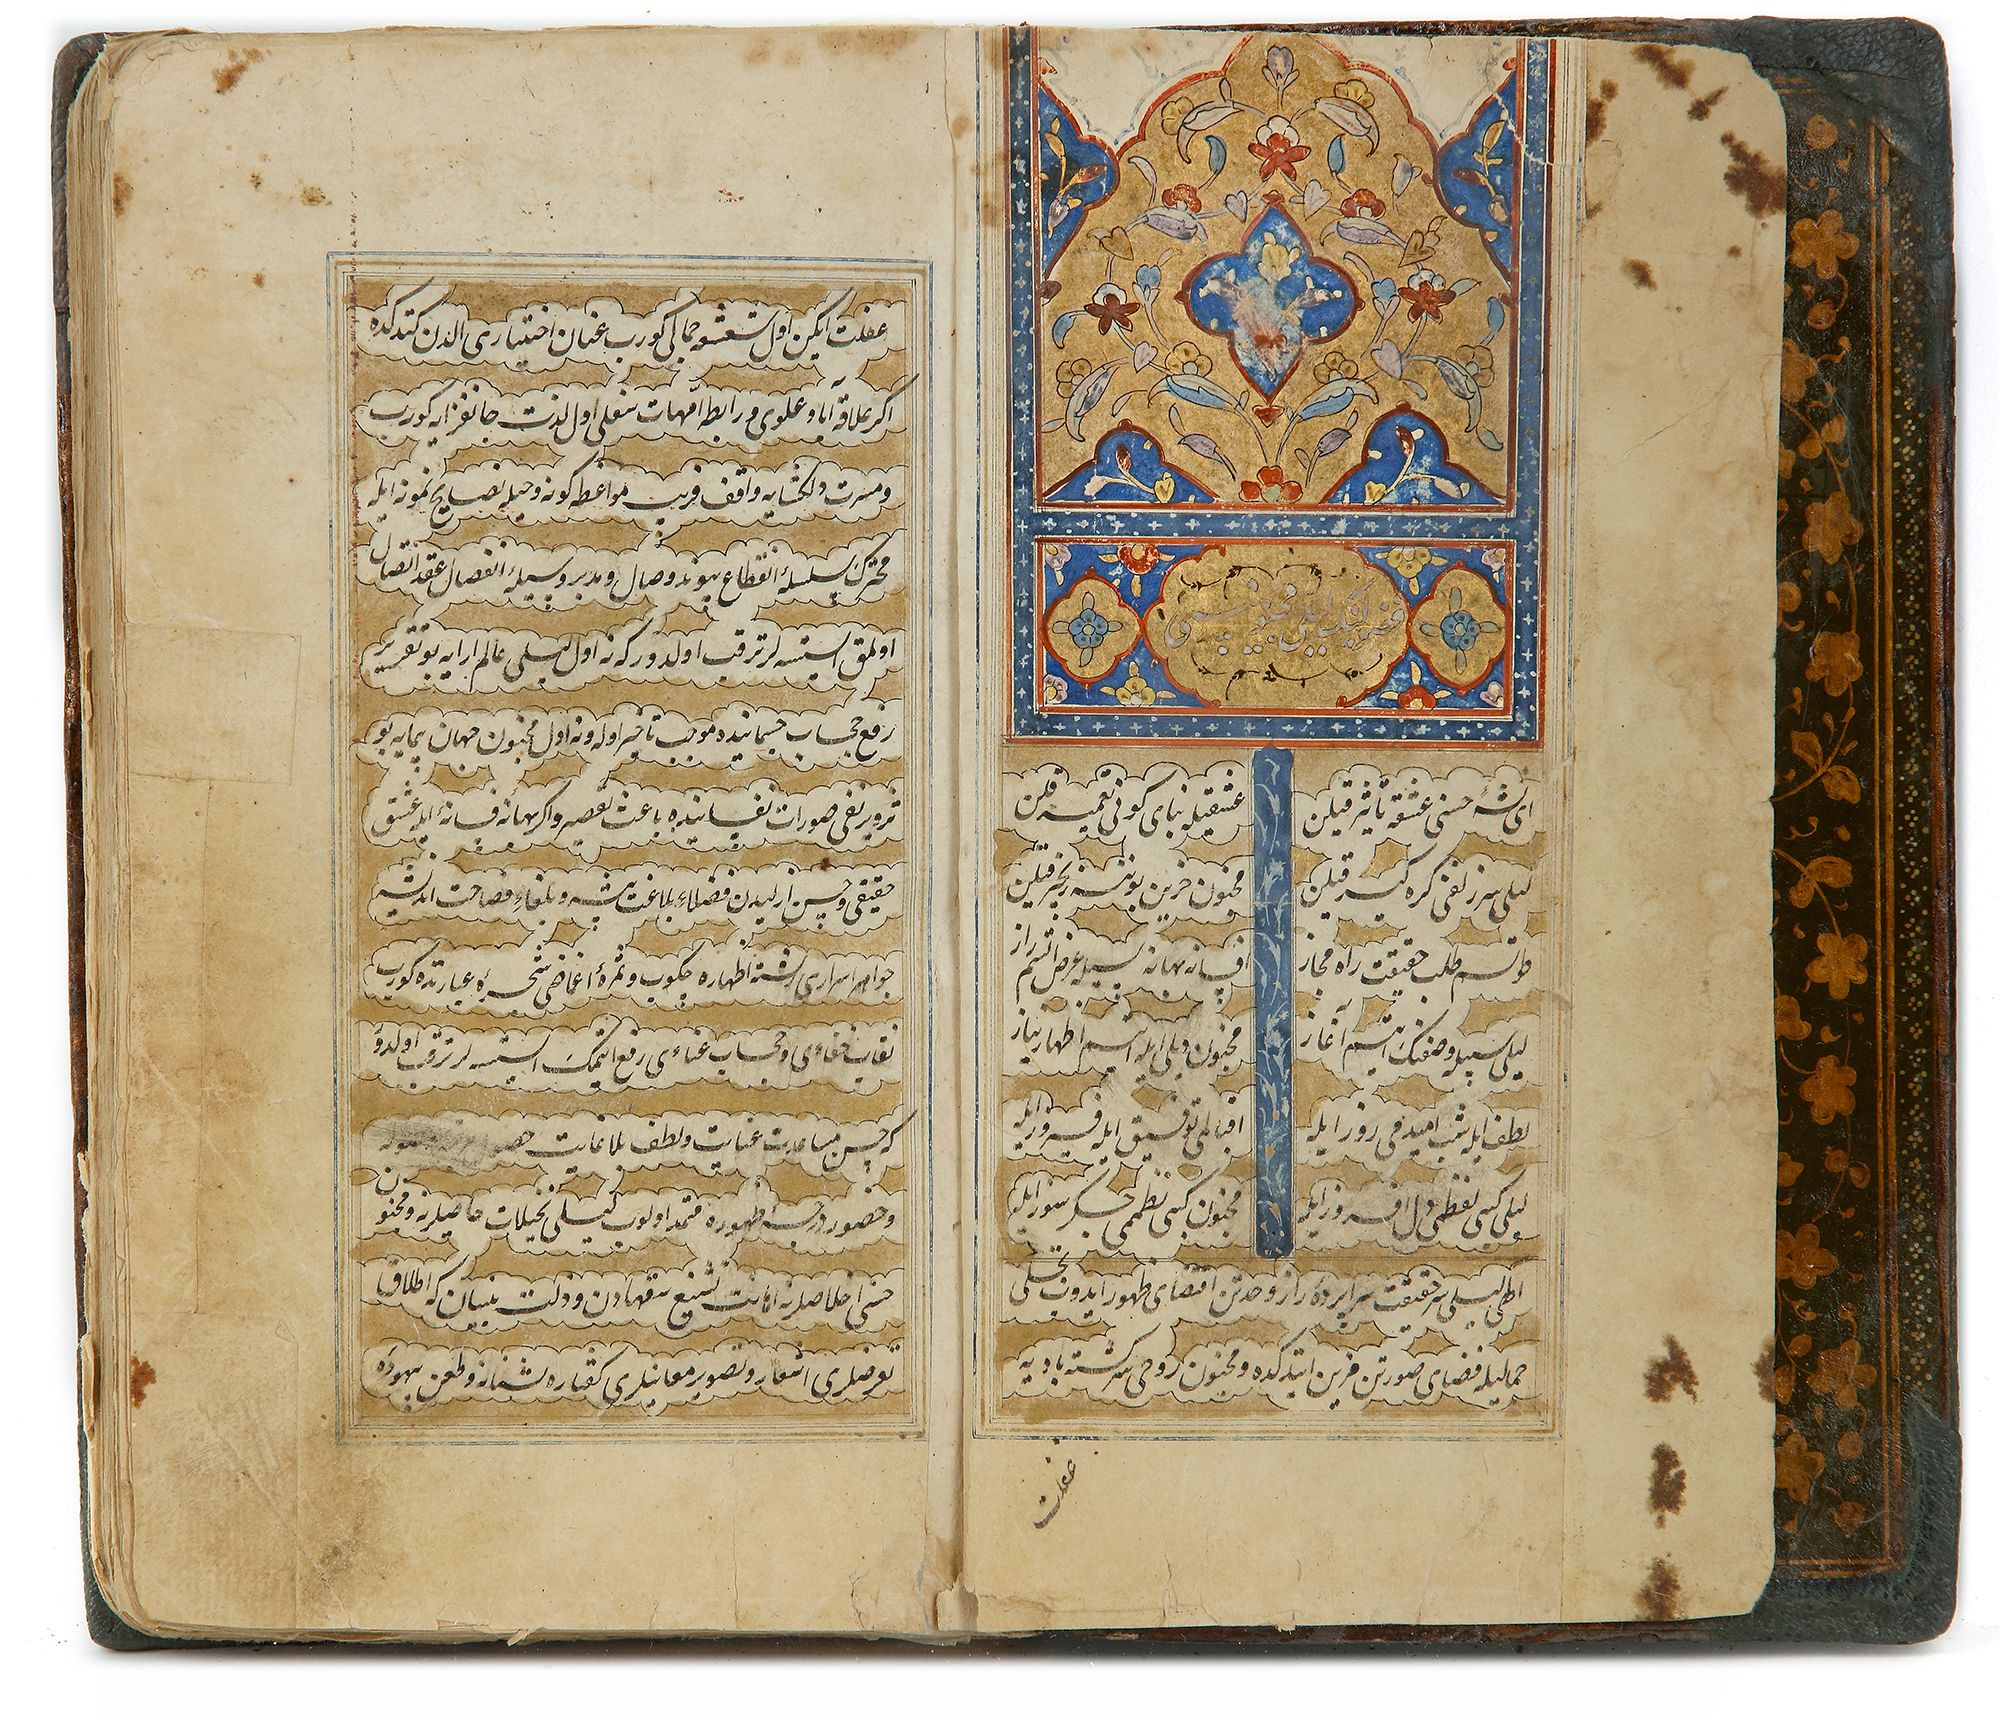 فضولینک لیلی و مجنون
ای نشئهٔ حسنی عشقه تاثیر قیلن عشقیله بنای کونی تعمیر قیلن
لیلی سر زلفنی کره کیر قیلن مجنون حزین بویننه زنجیر قیلن
دوتسم طلب حقیقت راه مجاز افسانه بهانه سیله عرض ایتسم راز
لیلی سببیله وصفنک ایتسم آغاز مجنون دیلی ایله ایتسم اظهار نیاز
لطف ایله شب امیدمی روز ایله اقبالمی توفیق ایله فیروز ایله
لیلی کیمی لفظمی دل افروز ایله مجنون کیمی نظممی جکر سوز ایله
الهی لیلی سر حقیقت سراپردهٔ راز وحدتن اقتضای ظهور ایدوب تجلی
جمالیله فضای صورتن مزین ایتدکده و مجنون روحی سرکشته بادیه
غفلت
غفلت ایکن اول شعشعه جمالی کورب عنان اختیاری الدن کتدکده
اکر علاقه آباء علوی و رابطه امهات سفلی اول لذت جانفزایه کورب
و مسرت دلکشایه واقف فریب مواعظ کونه و حیله نصایح نمونه ایله
محرک سلسلهٔ انقطاع پیوند وصال و مدبر وسیلهٔ انفصال عقد اتصال
اولمق ایستسه لر ترقب اولدور که نه اول لیلی عالم آرایه بو تقریر
رفع حجاب جسمانیده موجب تاخیر اوله و نه اول مجنون جهان پیمایه بو
تزویر نفی صورات نفسانیده باعث تقصیر و اکر بهانهٔ فسانهٔ ایله عشق
حقیقی و حسن ازلیدن فضلاء بلاغت پیشه و بلغاء فصاحت اندیشه
جواهر اسراری رشته اظهاره چکوب و ثمرهٔ اغماضی شجرهٔ عبارتده کورب
نقاب خفاءی و حجاب غناءی رفع ایتمک ایستسه لر ترقب اولدور
که حسن مساعدت عنایت و لطف بلا غایت
و حضور درجه اظهوره ممتد اولوب لیلی تخیلات حاصلرنه و مجنون
حسنی اخلاصلرنه اهانت تشنیع سفهادن و ذلت نسیان که اطلاق
تعرضلری اشعار و تصویر معانیلری کفتاره نشانه و طعن بیهوده